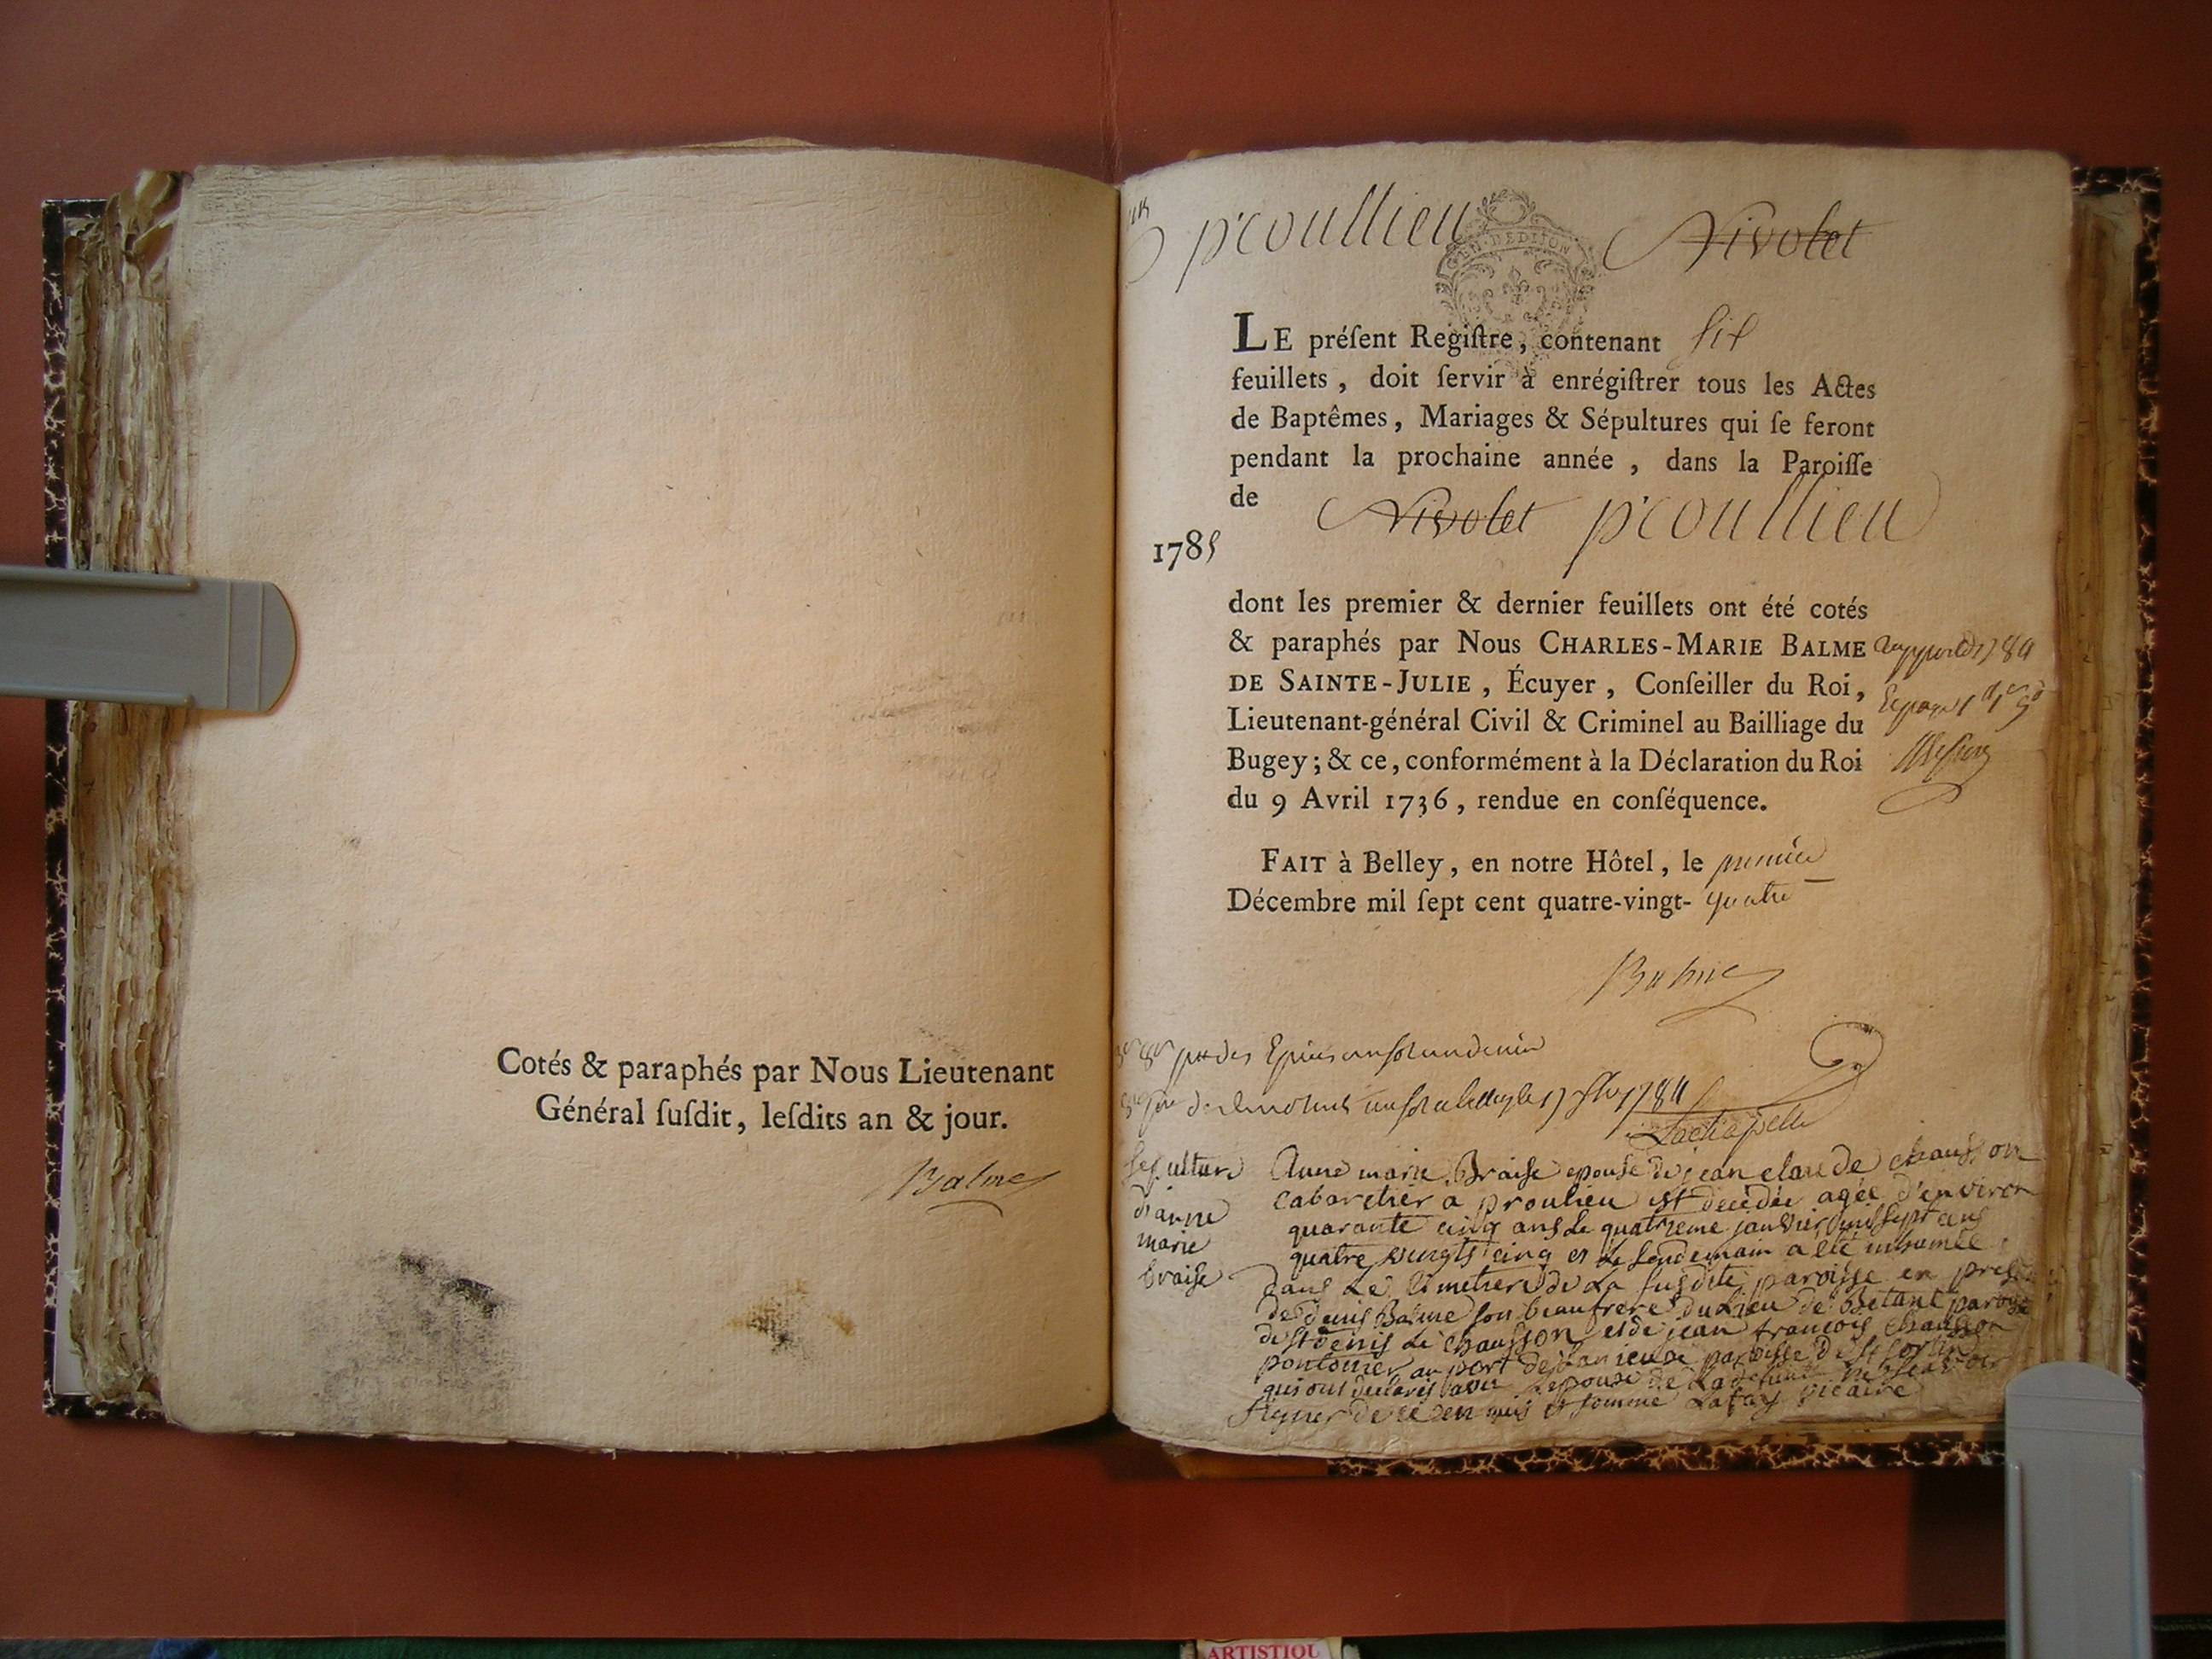 Cotés & paraphés par Nous Lieutenant
Général ſuſdit, leſdits an & jour.
Balme
p'roullien Nivolet
GEN·DEDIJON
LE préſent Regiſtre, contenant six
feuillets, doit ſervir à enrégiſtrer tous les Actes
de Baptêmes, Mariages & Sépultures qui ſe feront
pendant la prochaine année, dans la Paroiſſe
de Nivolet p'roullieu
1785
dont les premier & dernier feuillets ont été cotés
& paraphés par Nous CHARLES-MARIE BALME
DE SAINTE-JULIE, Écuyer, Conſeiller du Roi,
Lieutenant-général Civil & Criminel au Bailliage du
Bugey; & ce, conformément à la Déclaration du Roi
du 9 Avril 1736, rendue en conſéquence.
FAIT à Belley, en notre Hôtel, le premier
Décembre mil ſept cent quatre-vingt-quatre
Balme
1784
Lachapelle
Sepulture
d'anne
marie
braise
Anne marie Braise epouse de jean claude chausson
cabaretier a proulieu est decedée agée d'environ
quarante cinq ans le quatrieme janvier mil sept cens
quatre vingts cinq et le lendemain a été inhumée
dans le cimetiere de la susdite paroisse en
de denis Balme son beaufrere du lieu de Betant paroisse
de st denis le chausson et de jean francois chausson
pontonier au port de paroisse de st
qui ont declarés avec l'epoux de la defunte ne scavoir
signer de ce enquis et sommé Lafay vicaire
ARTISTIQU